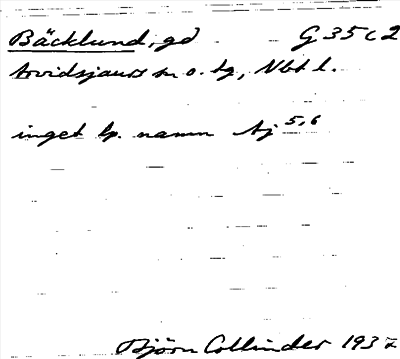 Bäcklund, gd G 35 c 2
Arvidsjaurs sn o. tg, Vbt l.
inget lp. namn Aj 5,6
Björn Collinder 1937